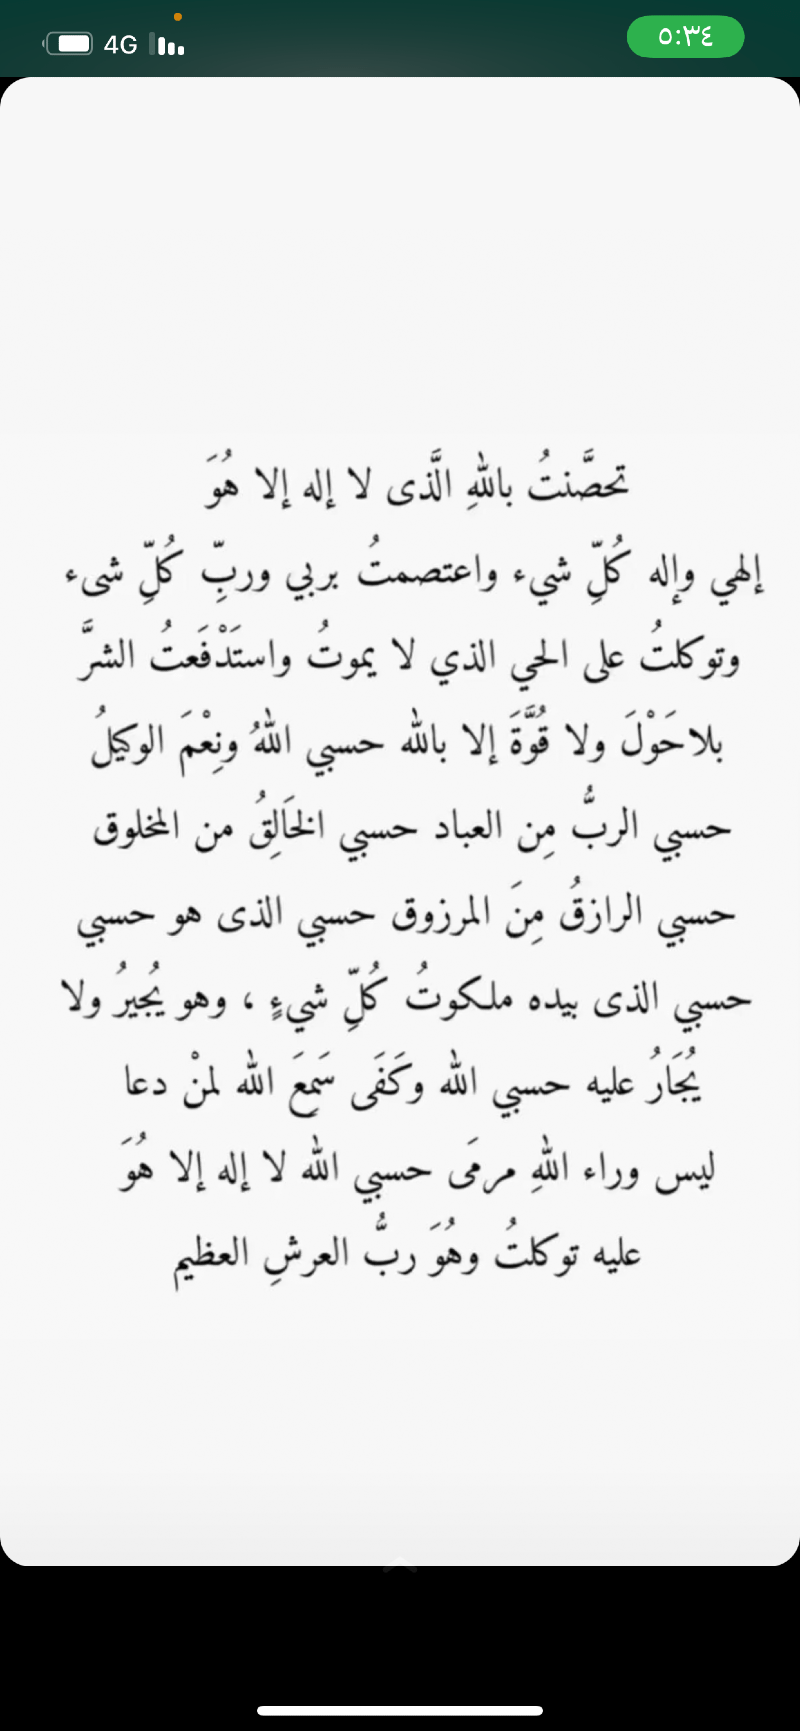 4G ٥:٣٤
تحصَّنتُ باللهِ الَّذى لا إله إلا هُوَ
إلهي وإله كُلِّ شيء واعتصمتُ بربي وربِّ كُلِّ شىء
وتوكلتُ على الحي الذي لا يموتُ واستَدْفَعتُ الشرَّ
بلاحَوْلَ ولا قُوَّةَ إلا بالله حسبي اللهُ ونِعْمَ الوكيلُ
حسبي الربُّ مِن العباد حسبي الخَالِقُ من المخلوق
حسبي الرازقُ مِنَ المرزوق حسبي الذى هو حسبي
حسبي الذى بيده ملكوتُ كُلِّ شيءٍ ، وهو يُجيرُ ولا
يُجَارُ عليه حسبي الله وكَفَى سَمِعَ الله لمنْ دعا
ليس وراء اللهِ مرمَى حسبي الله لا إله إلا هُوَ
عليه توكلتُ وهُوَ ربُّ العرشِ العظيم